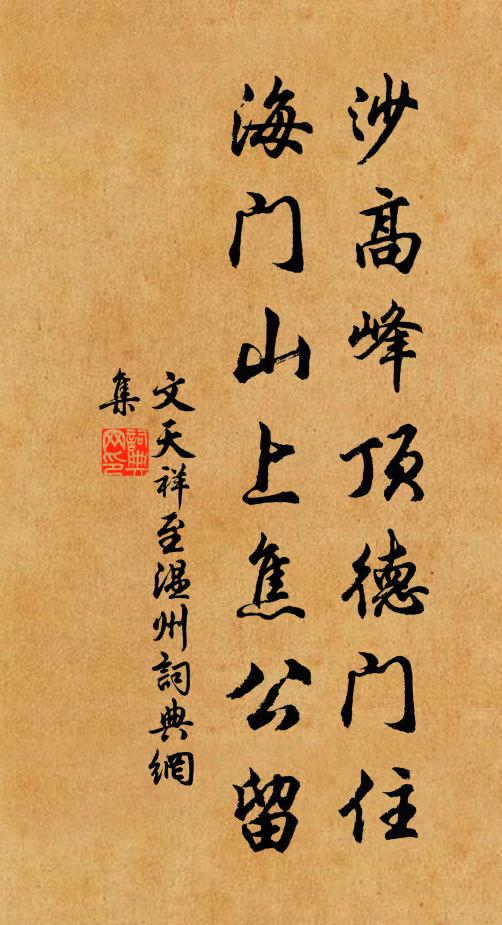 沙高峰顶德门住
海门山上焦公留
文天祥至温州詞典網
集
詞典
网印